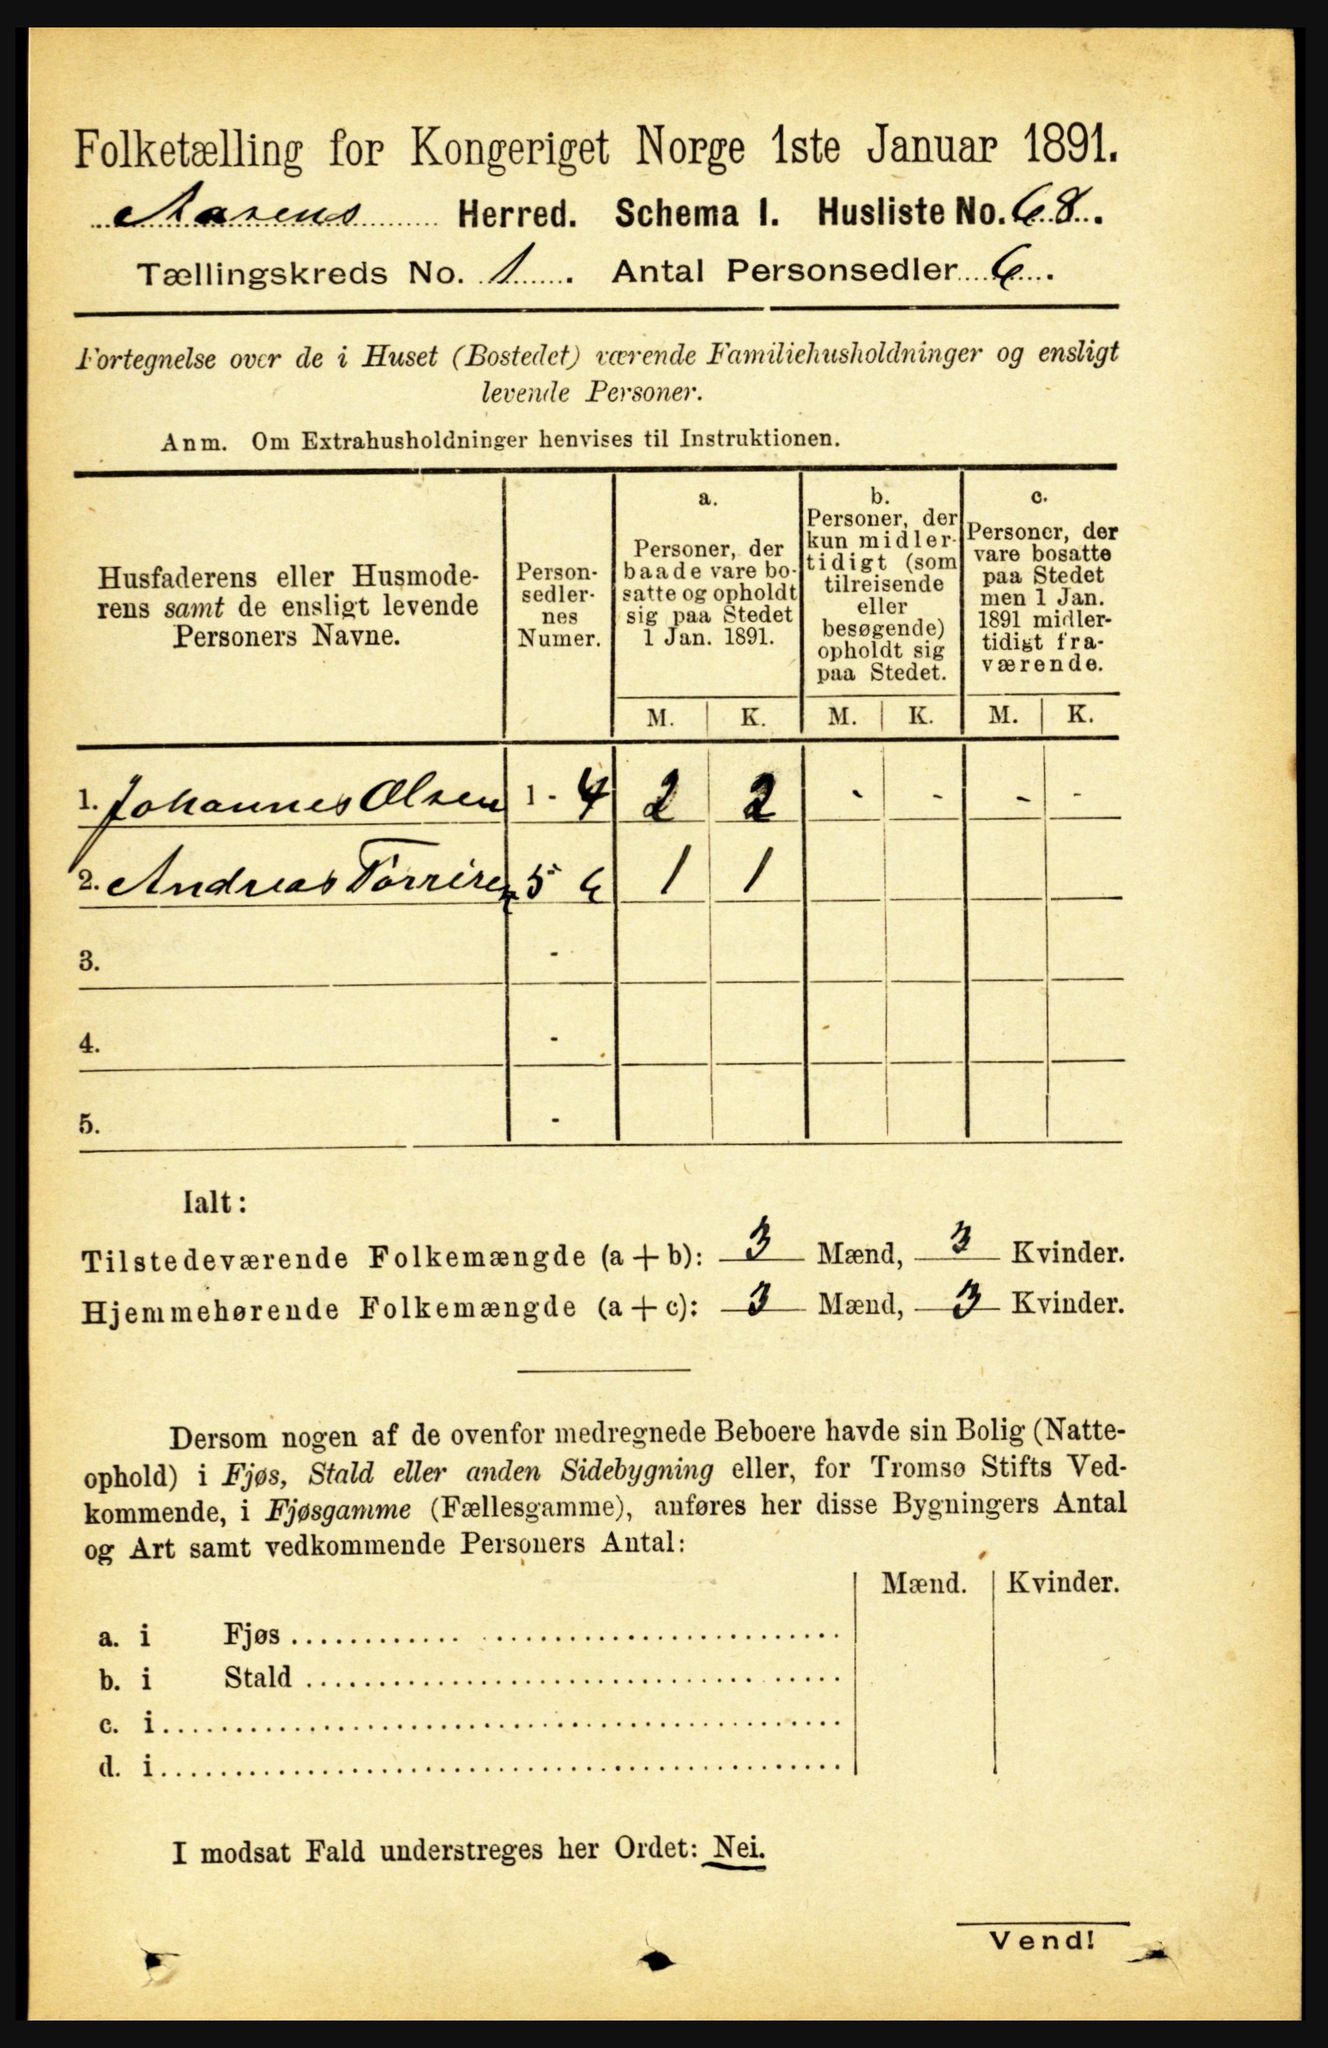 Folketælling for Kongeriget Norge 1ste Januar 1891.
Aasens Herred. Schema I. Husliste No. 68.
Tællingskreds No. 1. Antal Personsedler 6.
Fortegnelse over de i Huset (Bostedet) værende Familiehusholdninger og ensligt
levende Personer.
Anm. Om Extrahusholdninger henvises til Instruktionen.
Husfaderens eller Husmode-
rens samt de ensligt levende
Personers Navne.
Person-
sedler-
nes
Numer.
a.
Personer, der
baade vare bo-
satte og opholdt
sig paa Stedet
1 Jan. 1891.
b.
Personer, der
kun midler-
tidigt (som
tilreisende
eller
besøgende)
opholdt sig
paa Stedet.
c.
Personer, der
vare bosatte
paa Stedet
men 1 Jan.
1891 midler-
tidigt fra-
værende.
M. K. M. K. M. K.
1. Johannes Olsen 1 - 4 2 2 - - - -
2. Andreas 5 6 1 1
3. -
4. -
5. -
Ialt:
Tilstedeværende Folkemængde (a + b): 3 Mænd, 3 Kvinder.
Hjemmehørende Folkemængde (a + c): 3 Mænd, 3 Kvinder.
Dersom nogen af de ovenfor medregnede Beboere havde sin Bolig (Natte-
ophold) i Fjøs, Stald eller anden Sidebygning eller, for Tromsø Stifts Ved-
kommende, i Fjøsgamme (Fællesgamme), anføres her disse Bygningers Antal
og Art samt vedkommende Personers Antal:
Mænd. Kvinder.
a. i Fjøs
b. i Stald
c. i
d. i
I modsat Fald understreges her Ordet: Nei.
Vend!